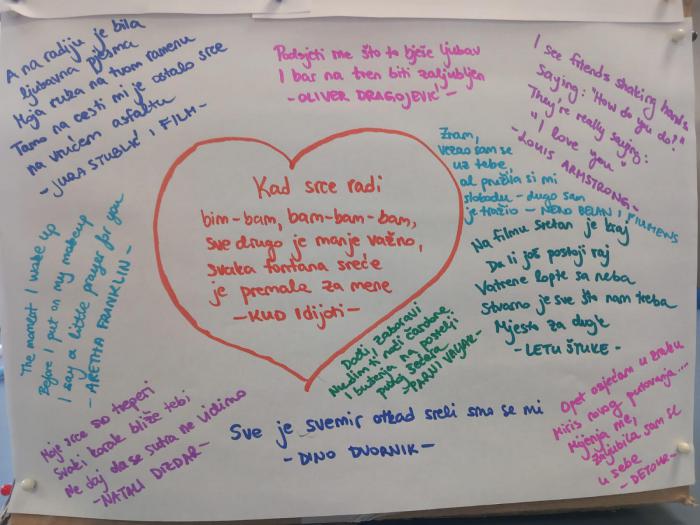 A na radiju je bila
ljubavna pjesma
Moja ruka na tvom ramenu
Tamo na cesti mi je ostalo srce
na vrućem asfaltu
- JURA STUBLIĆ I FILM -
Podsjeti me što to bješe ljubav
I bar na tren biti zaljubljen
- OLIVER DRAGOJEVIĆ -
I see friends shaking hands
Saying: "How do you do!"
They're really saying:
"I love you"
- LOUIS ARMSTRONG -
Kad srce radi
bim-bam, bam-bam-bam,
sve drugo je manje važno,
svaka fontana sreće
je premala za mene
- KUD Idijoti -
Znam,
vezao sam se
uz tebe,
al pružila si mi
slobodu - dugo sam
je tražio - NENO BELAN I FIUMENS
Na filmu sretan je kraj
Da li još postoji raj
Vatrene lopte sa neba
Stvarno je sve što nam treba
Mjesto za dvoje
- LETU ŠTUKE -
The moment I wake up
Before I put on my makeup
I say a little prayer for you
- ARETHA FRANKLIN -
Dođi, zaboravi
Nudim ti noći čarobne
I buđenja na postelji
punoj šećera
- PARNI VALJAK -
Moje srce sto treperi
Svaki korak bliže tebi
Ne daj da se sutra ne vidimo
- NATALI DIZDAR -
Sve je svemir otkad sreli smo se mi
- DINO DVORNIK -
Opet osjećam u zraku
Miris novog putovanja...
Mijenja me,
zaljubila sam se
u sebe
- DETOUR -